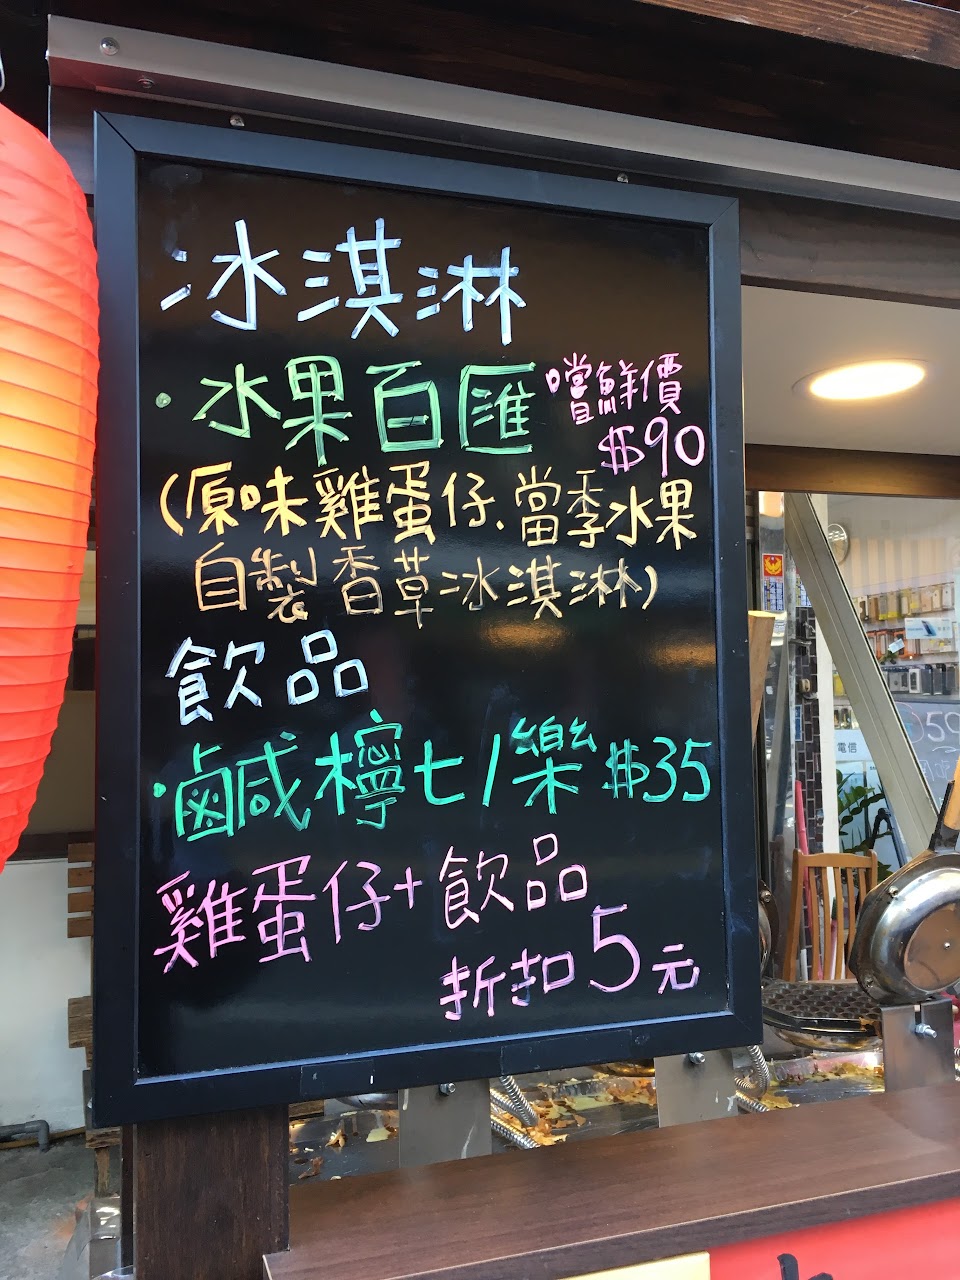 冰淇淋
·水果百匯 嚐鮮價
$90
(原味雞蛋仔、當季水果
自製香草冰淇淋)
飲品
·鹹檸七/樂 $35
雞蛋仔+飲品
折扣5元
電信